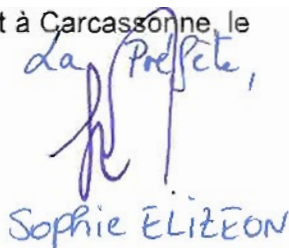 t à Carcassonne, le
La Préfète,
Sophie ELIZEON